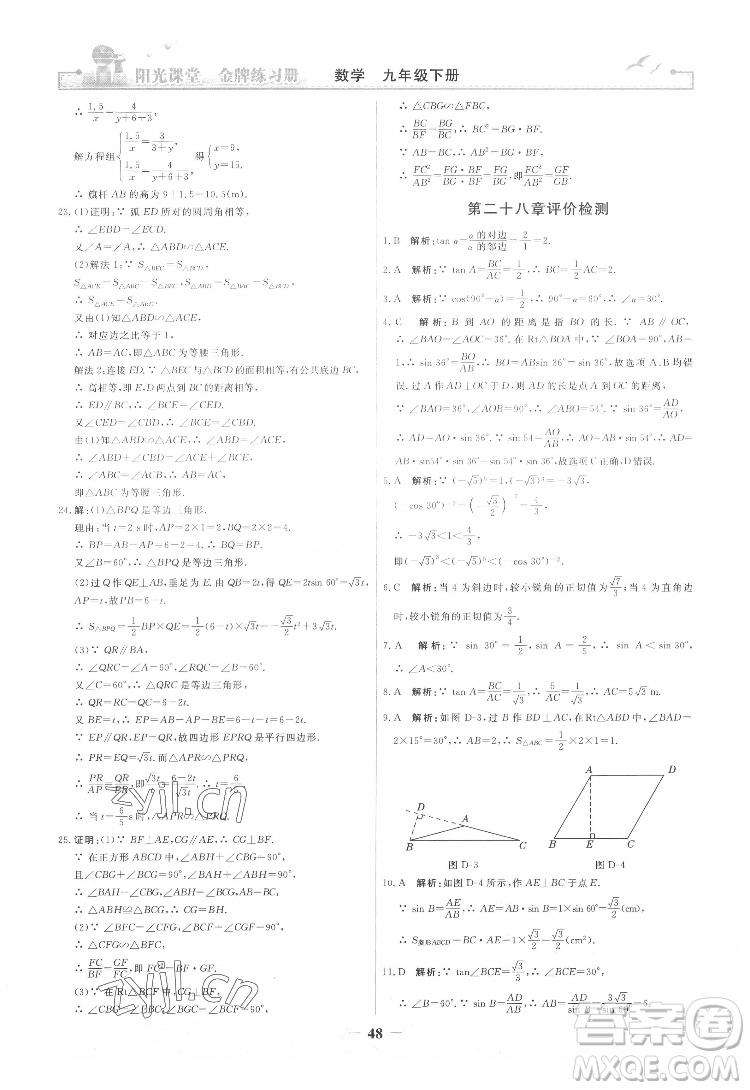 阳光课堂 金牌练习册 数学 九年级下册
∴ 1.5/x = 4/(y+6+3)
解方程组 { 1.5/x = 3/(3+x), 1.5/x = 4/(y+6+3). 得 { x=9, y=15.
∴ 旗杆 AB 的高为 9+1.5=10.5(m).
23. (1)证明:∵ 弧 ED 所对的圆周角相等,
∴ ∠EBD=∠ECD.
又∠A=∠A,∴ △ABD∽△ACE.
(2)解法 1:∵ S△BEC=S△BCD,
S△ACE=S△ABC−S△BEC,S△ABD=S△ABC−S△BCD,
∴ S△ACE=S△ABD.
又由(1)知△ABD∽△ACE,
∴ 对应边之比等于 1,
∴ AB=AC,即△ABC 为等腰三角形.
解法 2:连接 ED,∵ △BEC 与△BCD 的面积相等,有公共底边 BC,
∴ 高相等,即 E,D 两点到 BC 距离相等,
∴ ED∥BC,∴ ∠BCE=∠CED.
又∠CED=∠CBD,∴ ∠BCE=∠CBD.
由(1)知△ABD∽△ACE,
∴ ∠ABD=∠ACE,
∴ ∠ABD+∠CBD=∠ACE+∠BCE,
∴ ∠ABC=∠ACB,
即△ABC 为等腰三角形.
24. 解:(1)△BPQ 是等边三角形.
理由:当 t=2 s时,AP=2×1=2,BQ=2×2=4.
∴ BP=AB−AP=6−2=4.∴ BP=BQ.
又∠B=60°,∴ △BPQ 是等边三角形.
(2)过 Q 作 QE⊥AB,垂足为 E.由 QB=2t,得 QE=2tsin 60°=√3t,
AP=t,∴ PB=6−t.
∴ S△BPQ=1/2BP×QE=1/2(6−t)×√3t=−√3/2t²+3√3t.
(3)∵ QR∥BA,
∴ ∠QRC=∠A=60°,∠RQC=∠B=60°.
又∠C=60°,∴ △QRC 是等边三角形,
∴ QR=RC=QC=6−2t.
又 BE=t,∴ EP=AB−AP−BE=6−t−t=6−2t,
∴ EP∥QR,EP=QR,∴ 四边形 EPRQ 是平行四边形.
∴ PR=EQ=√3t.而△APR∽△PRQ,
∴ PR/AP=QR/PR,即√3t/t=(6−2t)/√3t,∴ t=6/5.
∴ 当 t=6/5 s时,△APR∽△PRQ.
25. 证明:(1)∵ BF⊥AE,CG∥AE,∴ CG⊥BF.
∵ 在正方形 ABCD 中,∠ABH+∠CBG=90°,
且∠CBG+∠BCG=90°,∠BAH+∠ABH=90°,
∴ ∠BAH=∠CBG,∠ABH=∠BCG,AB=BC,
∴ △ABH≌△BCG.
(2)∵ ∠BFC=∠CFG,∠BCF=∠CGF=90°,
∴ △CFG∽△BFC,
∴ FC/BF=GF/FC,即 FC²=BF·GF.
(3)∵ 在 Rt△BCF 中,CG⊥BF,
∴ ∠CBG=∠FBC,∠BGC=∠BCF=90°,
∴ △CBG∽△FBC,
∴ BC/BF=BG/BC,∴ BC²=BG·BF.
∵ AB=BC,∴ AB²=BG·BF.
∴ FC²/AB²=FG·BF/BG·BF=FG/BG,即FC²/AB²=GF/GB.
第二十八章评价检测
1. B 解析:tan α=α的对边/α的邻边=2/1=2.
2. A 解析:∵ tan A=BC/AC=1/2,BC=2,∴ AC=4.
3. A 解析:∵ cos(90°−α)=1/2,∴ 90°−α=60°,∴ ∠α=30°.
4. C 解析:B 到 AO 的距离是指 BO 的长.∵ AB∥OC,
∴ ∠BAO=∠AOC=36°,在 Rt△BOA 中,∠BOA=90°,
AB=1,∴ sin 36°=BO/AB,∴ BO=ABsin 36°,故选项A错误;
过 A 作 AD⊥OC 于点 D,则 AD 的长是点 A 到 OC 的距离,
∵ ∠BAO=36°,∠AOB=90°,∴ ∠ABO=54°.∵ sin 36°=AD/AO,
∴ AD=AO·sin 36°.∵ sin 54°=AO/AB,∴ AO=AB·sin 54°,∴ AD=
AB·sin54°·sin 36°=sin 54°·sin 36°,故选项C正确.
5. A 解析:∵ (−√5)⁰=1,(√3/3)⁻¹÷(−1/3)=√3÷(−1/3)=−3√3,
(−cos 30°)⁻²=(−√3/2)⁻²=4/3,
∴ −3√3<1<4/3,
即(√3/3)⁻¹÷(−1/3)<(−√5)⁰<(−cos 30°)⁻².
6. C 解析:当 4 为斜边时,较小锐角的正切值为√7/3;当 4 为直角边
时,较小锐角的正切值为3/4.
7. A 解析:∵ sin 30°=1/2,0<sin A=1/4<1/2,∴ sin A<sin 30°,
∴ ∠A<30°.
8. A 解析:∵ tan A=BC/AC=1/√3,∴ 5/AC=1/√3,∴ AC=5√3 m.
9. A 解析:如图 D-3,过点 B 作 BD⊥AC,在 Rt△ABD 中,∠BAD=
2×15°=30°,AB=2,∴ BD=1,∴ S△ABC=1/2×2×1=1.
D A B C
图 D-3
A D B E C
图 D-4
10. A 解析:如图 D-4 所示,作 AE⊥BC 于点 E.
∵ sin B=AE/AB,∴ AE=AB·sin B=1×√3/2=√3/2,
∴ S菱形ABCD=BC·AE=1×√3/2=√3/2.
11. D 解析:∵ tan∠BCE=BE/CE=√3/3,∴ ∠BCE=30°,
∴ ∠B=60°.∵ sin B=AD/AB,∴ AB=AD/sin 60°=3√3/(√3/2)=6,
48
zyjl.cn
答案圈